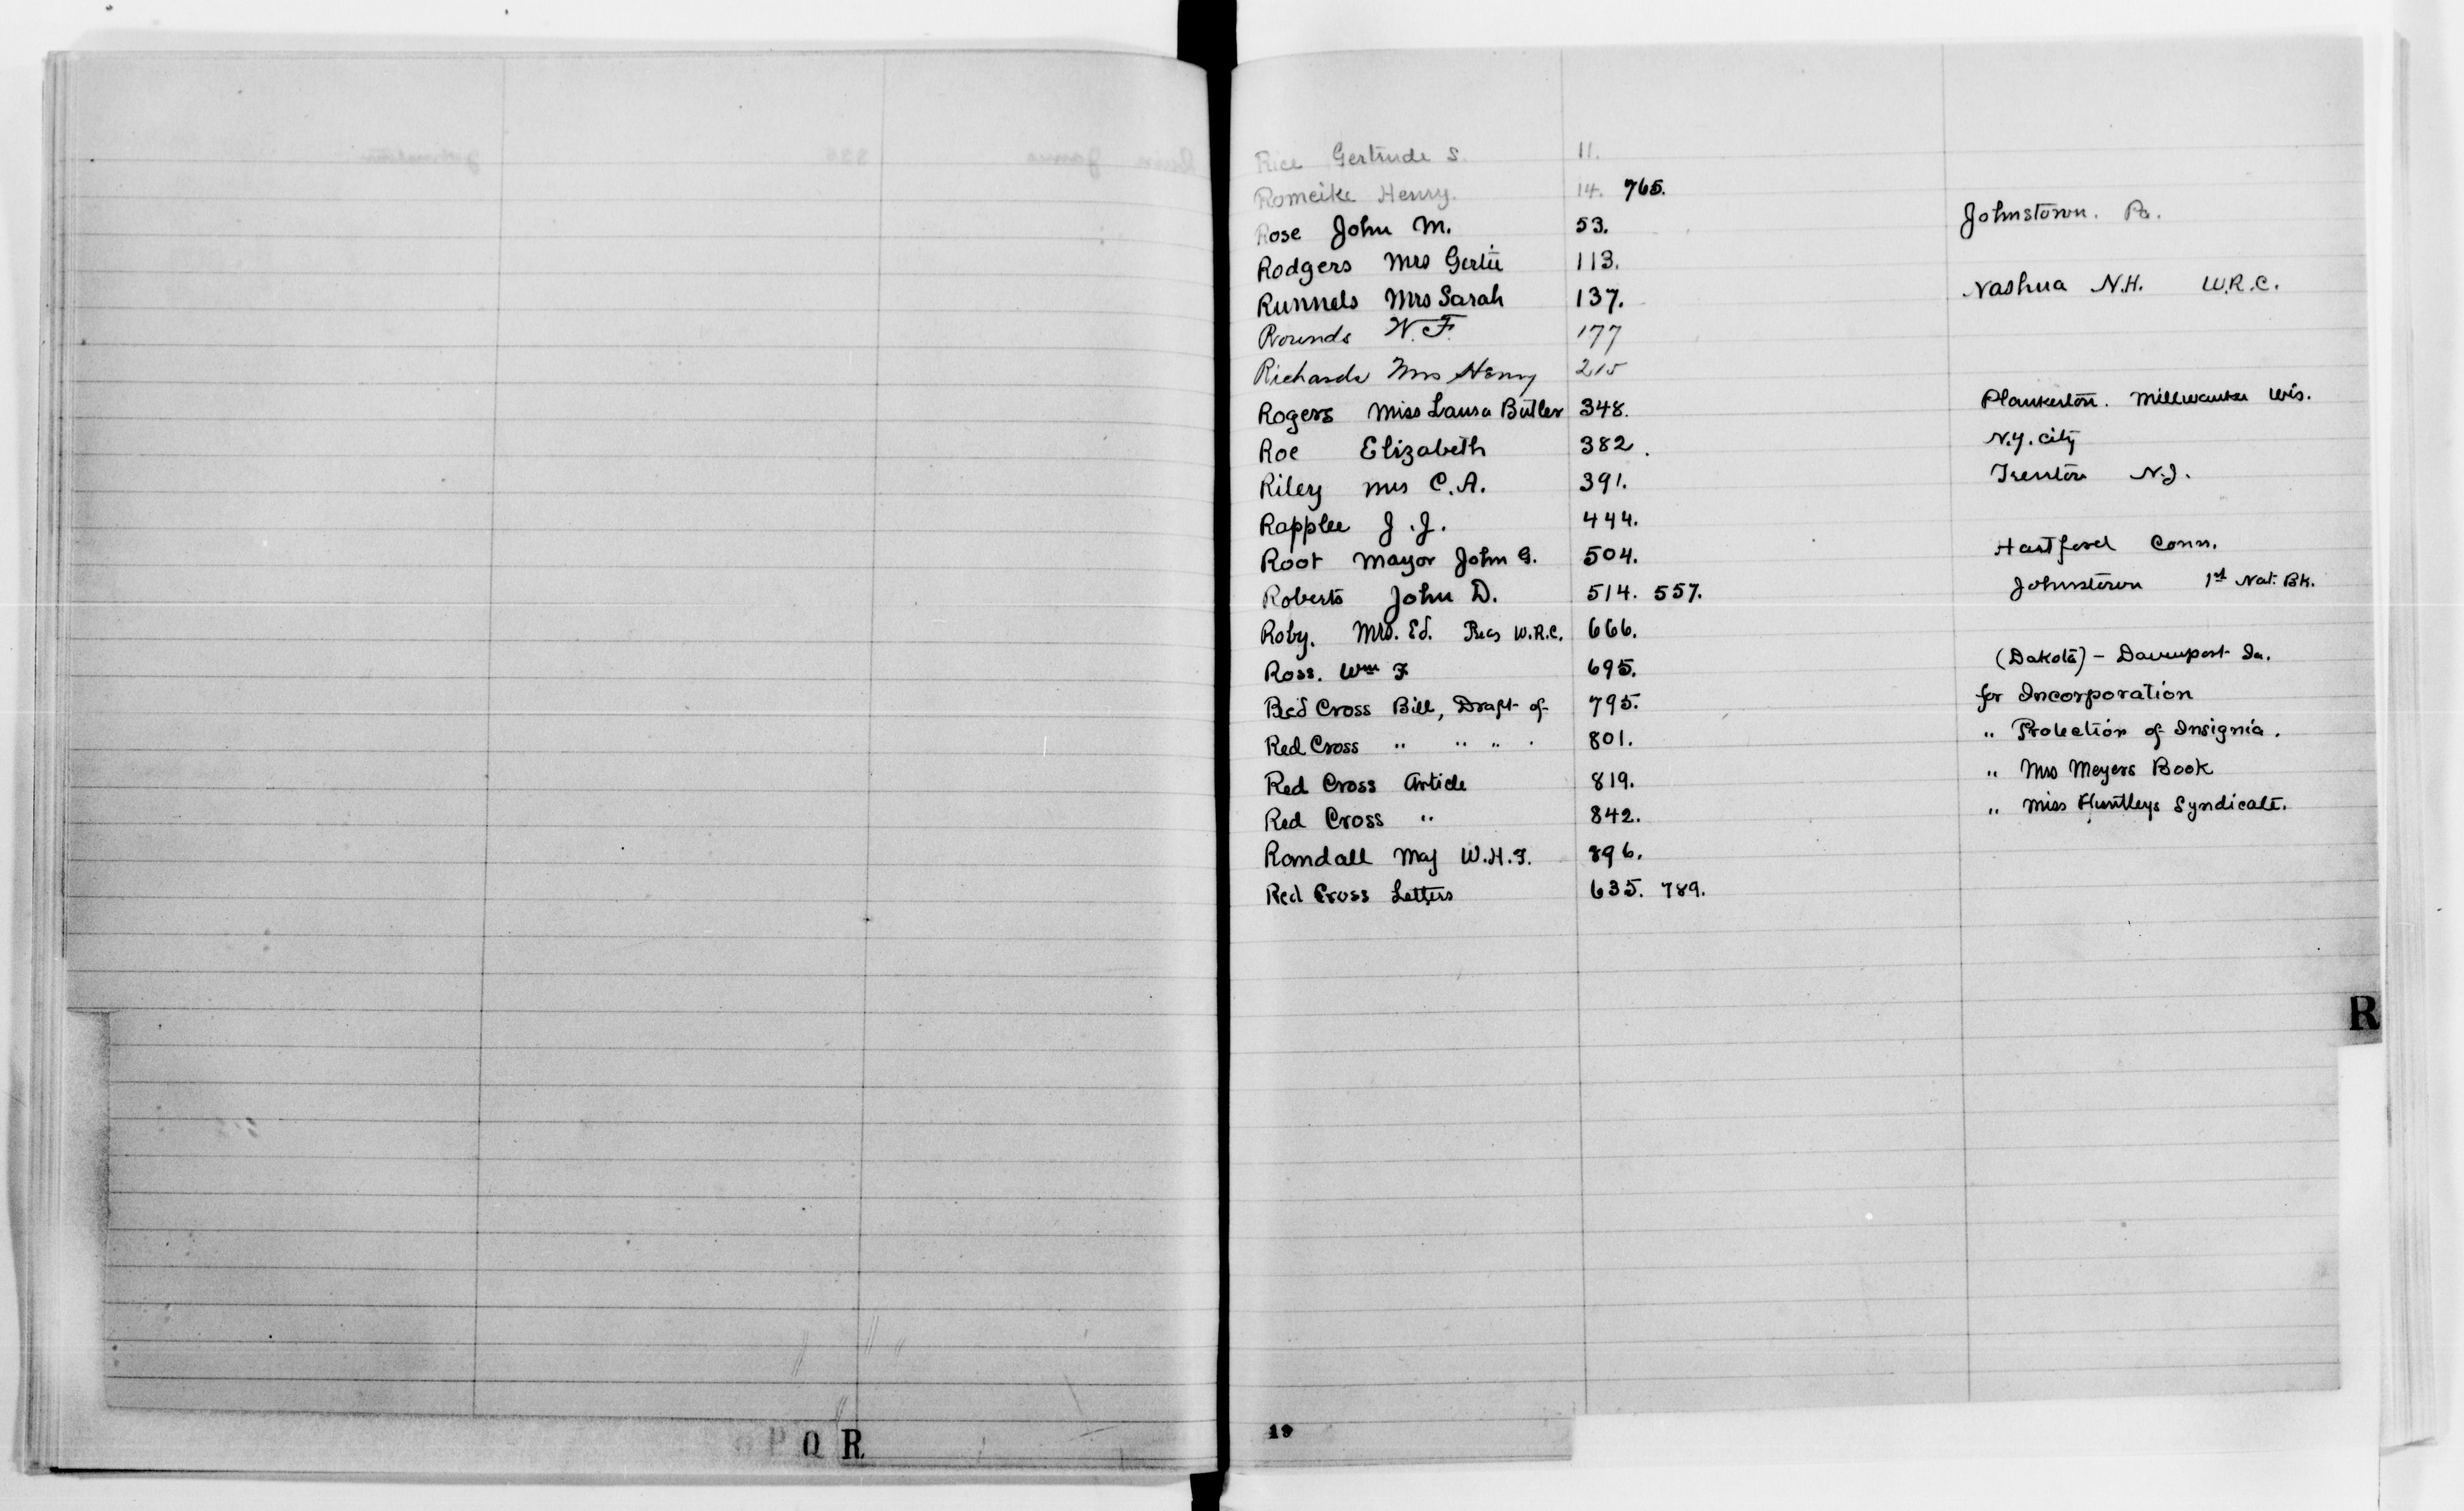 Rice Gertrude S. 11.
Romeike Henry. 14. 765.
Rose John M. 53. Johnstown. Pa.
Rodgers Mrs Gertie 113.
Runnels Mrs Sarah 137. Nashua N.H. W.R.C.
Rounds W. F. 177
Richards Mrs Henry 215
Rogers Miss Laura Butler 348. Plankerton. Millwaukee Wis.
Roe Elizabeth 382. N.Y. city
Riley Mrs C.A. 391. Trenton N.J.
Rapplee J.J. 444.
Root Mayor John G. 504. Hartford Conn.
Roberts John D. 514. 557. Johnstown 1st Nat. Bk.
Roby. Mrs. Ed. Pres W.R.C. 666.
Ross. Wm F 695. (Dakota) - Davenport Ia.
Red Cross Bill, Draft of 795. for Incorporation
Red Cross " " " . 801. " Protection of Insignia.
Red Cross Article 819. " Mrs Meyers Book
Red Cross " 842. " Miss Huntleys Syndicate.
Randall Maj W.H.F. 896.
Red Cross Letters 635. 789.
R
P Q R
19